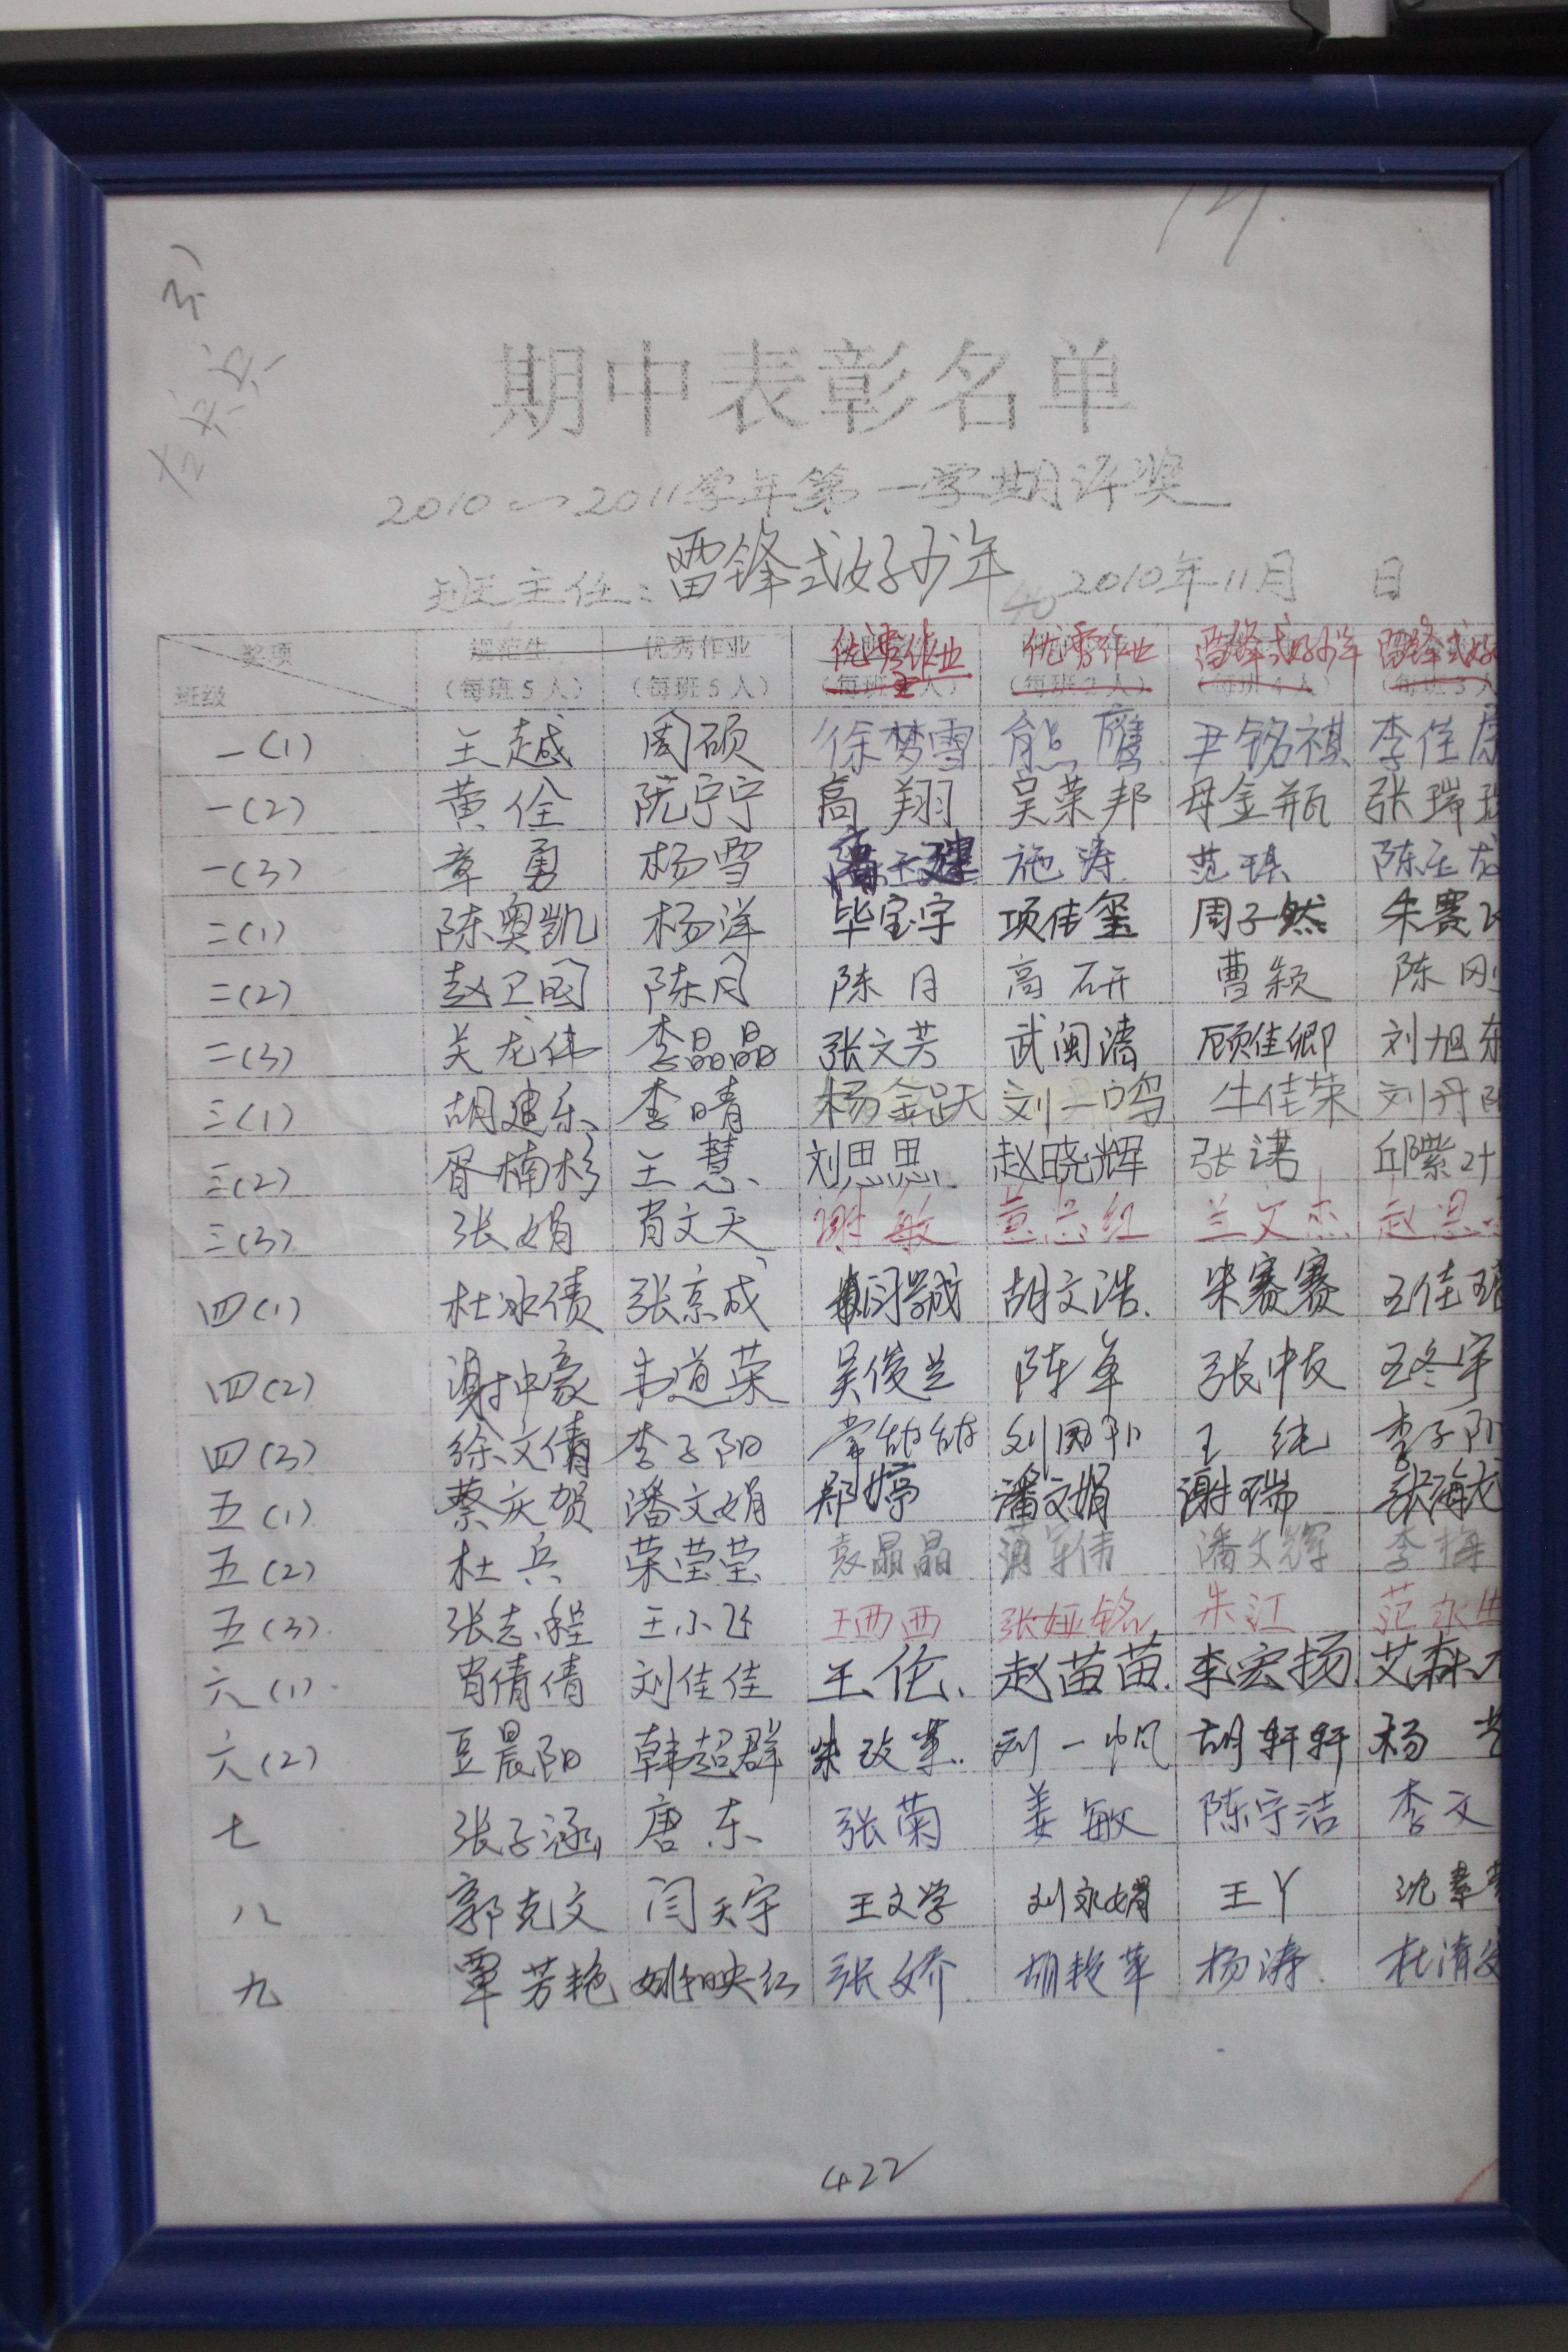 期中表彰名单
2010—2011学年第一学期评奖
班主任：雷锋式好少年 2010年11月 日
奖项 规范生 优秀作业 优秀作业 优秀作业 雷锋式好少年 雷锋式好
班级 （每班5人） （每班5人） （每班2人） （每班2人） （每班4人） （每班3人
一(1) 王越 周硕 徐梦雪 熊鹰 尹铭祺 李佳
一(2) 黄佺 阮宁宁 高翔 吴荣邦 母金瓶 张瑞
一(3) 章勇 杨雪 施涛 范琪 陈玉龙
二(1) 陈奥凯 杨洋 毕宝宇 项伟玺 周子然 朱赛
二(2) 赵卫国 陈月 陈月 高研 曹颖 陈刚
二(3) 关龙伟 李晶晶 张文芳 武闽涛 顾佳卿 刘旭东
三(1) 胡建乐 李晴 杨金跃 刘一鸣 牛佳荣 刘丹阳
三(2) 胥楠杉 王慧 刘思思 赵晓辉 张诺 邱紫叶
三(3) 张娟 肖文天 谢敏 黄忠红 兰文杰 赵思
四(1) 杜冰倩 张京成 胡文浩 朱赛赛 王佳琦
四(2) 谢坤豪 韦道荣 吴俊兰 陈军 张中友 王冬宇
四(3) 徐文倩 李子阳 常纳纳 刘国阳 王纯 李子阳
五(1) 蔡庆贺 潘文娟 郑婷 潘文娟 谢瑞 张海龙
五(2) 杜兵 荣莹莹 袁晶晶 蒲军伟 潘文辉 李梅
五(3) 张志程 王小飞 王西西 张娅铭 朱江 范永生
六(1) 肖倩倩 刘佳佳 王伦 赵苗苗 李宏扬 艾森
六(2) 豆晨阳 韩超群 朱改革 刘一帆 胡轩轩 杨
七 张子涵 唐东 张菊 姜敏 陈宇洁 李文
八 郭克文 闫天宇 王文学 刘永娟 王丫 沈
九 覃芳艳 姚映红 张娇 胡艳苹 杨涛 杜清
422